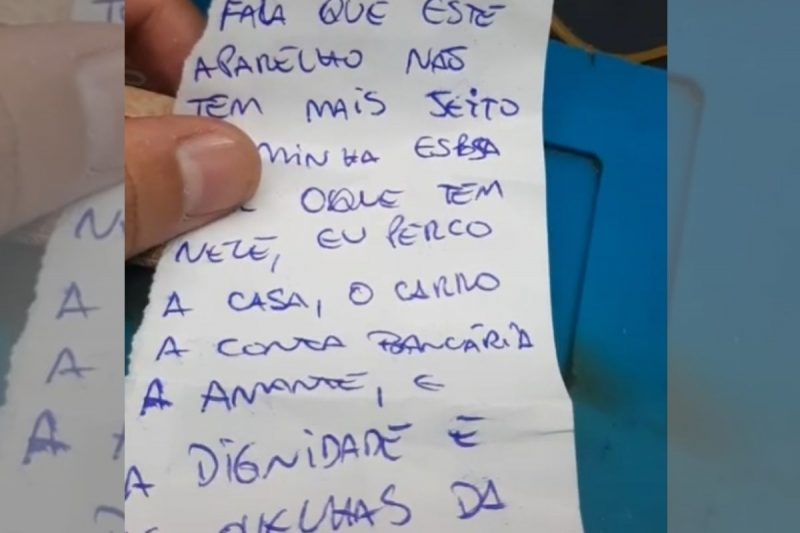 FALA QUE ESTE
APARELHO NÃO
TEM MAIS JEITO
MINHA ESPSA
OQUE TEM
NELE, EU PERCO
A CASA, O CARRO
A CONTA BANCÁRIA
A AMANTE, E
A DIGNIDADE E
DA